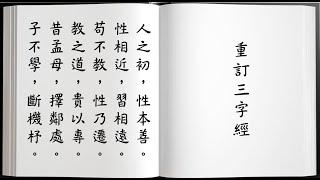 重訂三字經
人之初，性本善。
性相近，習相遠。
苟不教，性乃遷。
教之道，貴以專。
昔孟母，擇鄰處。
子不學，斷機杼。